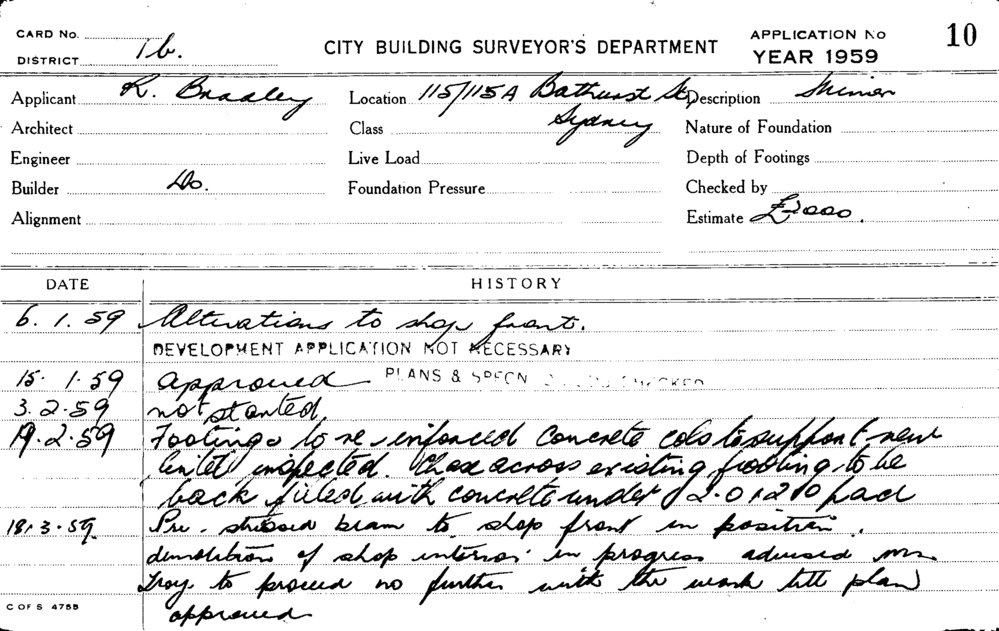 CARD No.
DISTRICT 1b.
CITY BUILDING SURVEYOR'S DEPARTMENT
APPLICATION No 10
YEAR 1959
Applicant R. Bradley Location 115/115A Bathurst St, Description Minor
Architect Class Sydney Nature of Foundation
Engineer Live Load Depth of Footings
Builder Do. Foundation Pressure Checked by
Alignment Estimate £2000.
DATE HISTORY
6. 1. 59 Alterations to shop front.
DEVELOPMENT APPLICATION NOT NECESSARY
15. 1. 59 approved PLANS & SPECN CHECKED
3. 2. 59 not started.
19. 2. 59 Footings to re-inforced concrete cols to support new
lintel inspected. Chase across existing footing to be
back filled with concrete under 2.0 x 2.0 pad
18. 3. 59. Pre-stressed beam to shop front in position.
demolition of shop interior in progress advised
Troy to proceed no further with the work till plan
approved
C OF S 475B